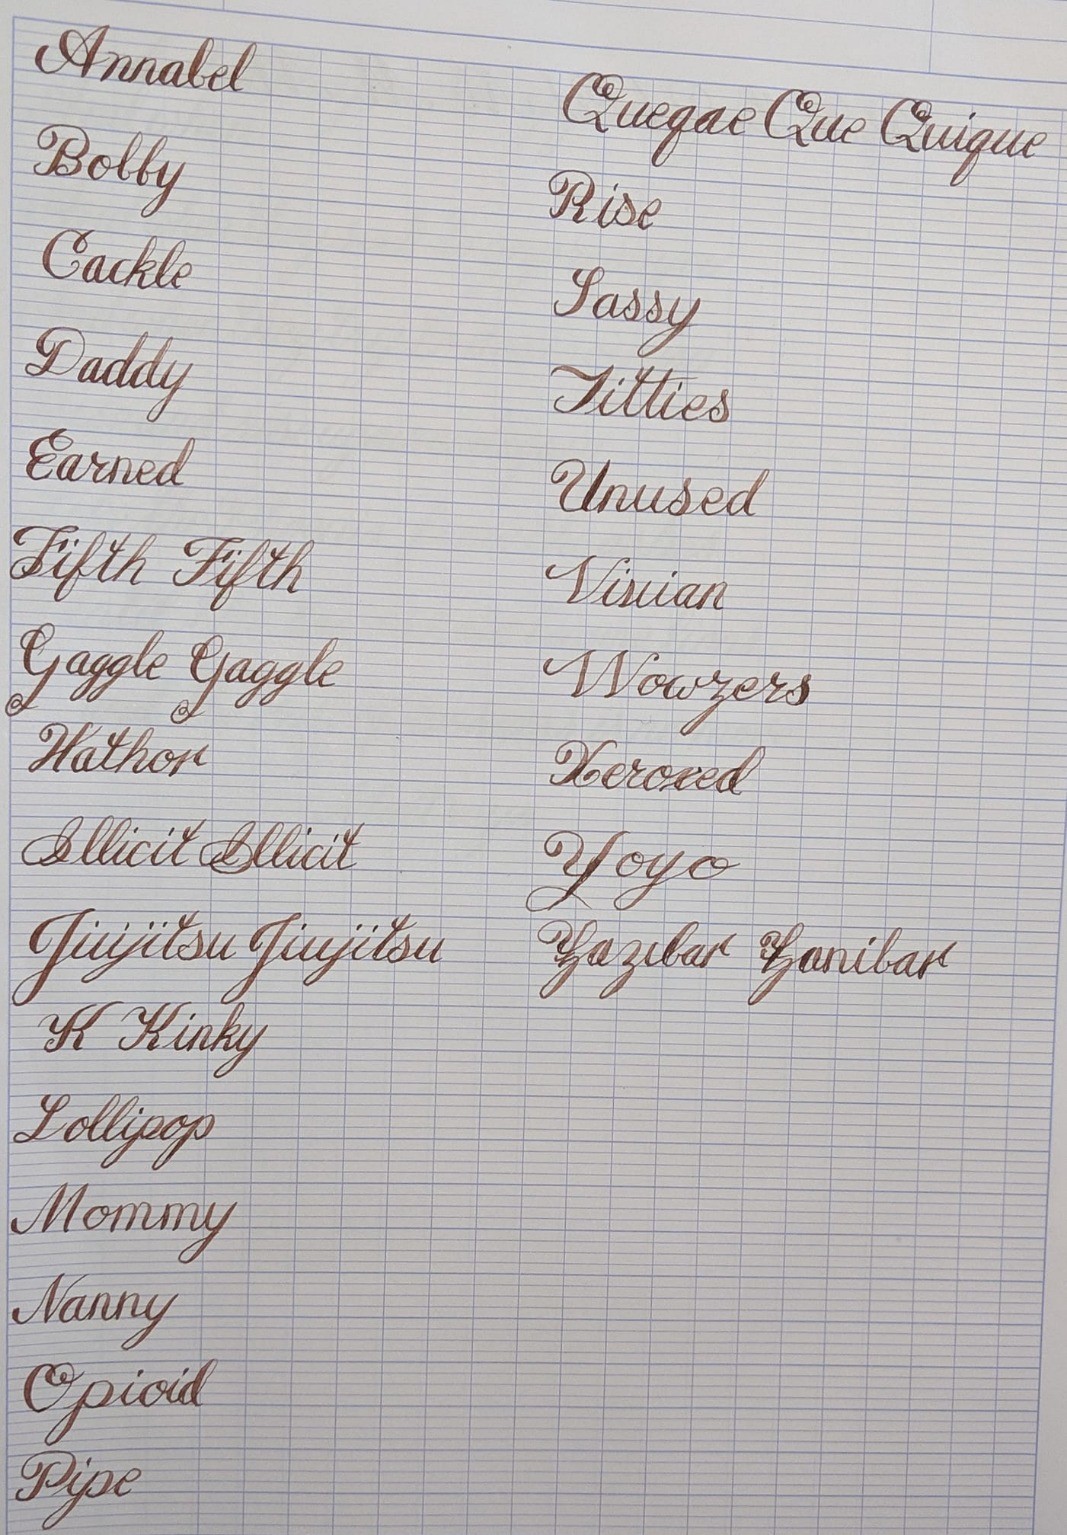 Annabel
Bobby
Cackle
Daddy
Earned
Fifth Fifth
Gaggle Gaggle
Hathor
Illicit Illicit
Jiujitsu Jiujitsu
K Kinky
Lollipop
Mommy
Nanny
Opioid
Pipe
Quegae Que Quique
Rise
Sassy
Titties
Unused
Wowzers
Xeroxed
Yoyo
Zazibar Zanibar